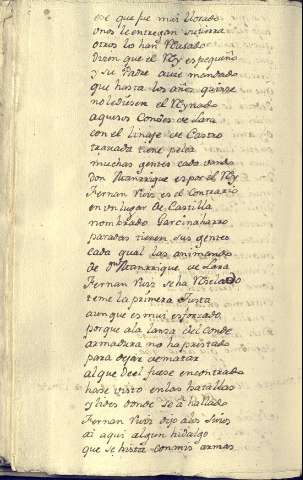 ese que fue mui llorado
unos le entregan su tierra
otros lo han Reusado
Dizen que el Rey es pequeño
y su Padre avie mandado
que hasta los años quinze
no le diesen el Reynado
aquesos Condes de Lara
con el linaje de Castro
travada tiene pelea
muchas gentes cada vando
Don Manrrique es por el Rey
Fernan Ruis es el contrario
en un lugar De Castilla
nombrado Garcinaharro
paradas tienen sus gentes
cada qual las animando
de Dn Manrrique de Lara
Fernan Ruis se ha Rezelado
teme la primera Justa
aunque es mui esforzado
porque a la lanza del conde
armadura no ha prestado
para dejar de matar
al que De el fuese encontrado
hase visto en las batallas
y lides donde se a hallado
Fernan Ruis dijo a los suios
ai aqui algun hidalgo
que se vista con mis armas